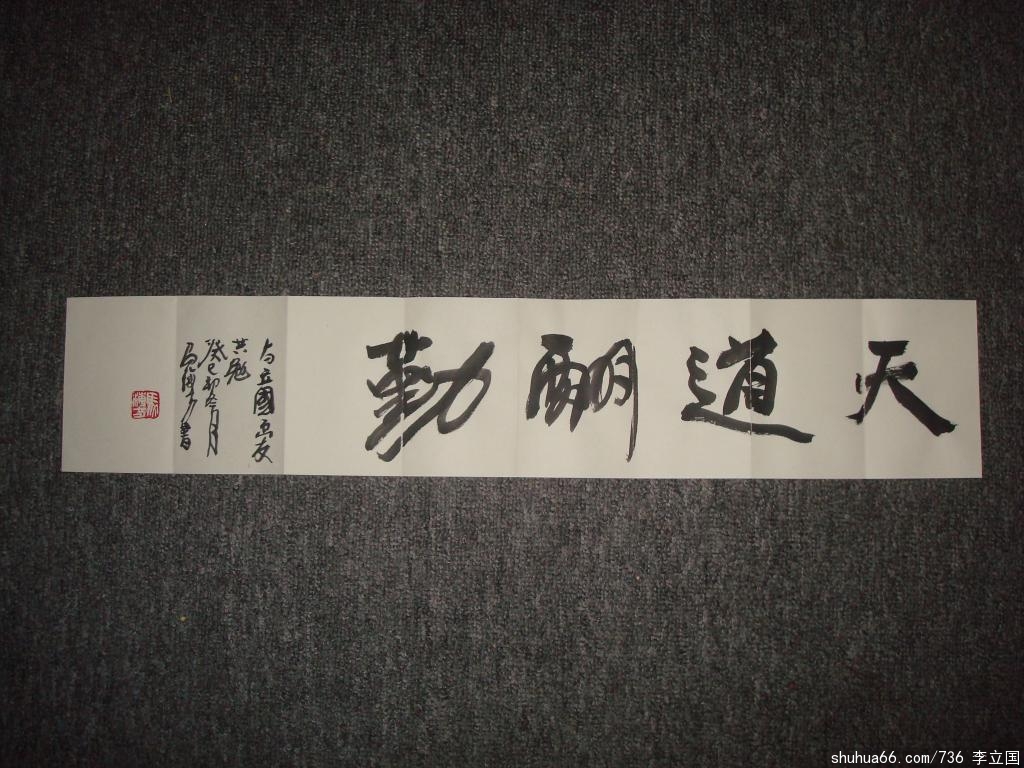 天道酬勤
与立國畫友
共勉
癸巳初冬月
馬書
shuhua66.com/736 李立国